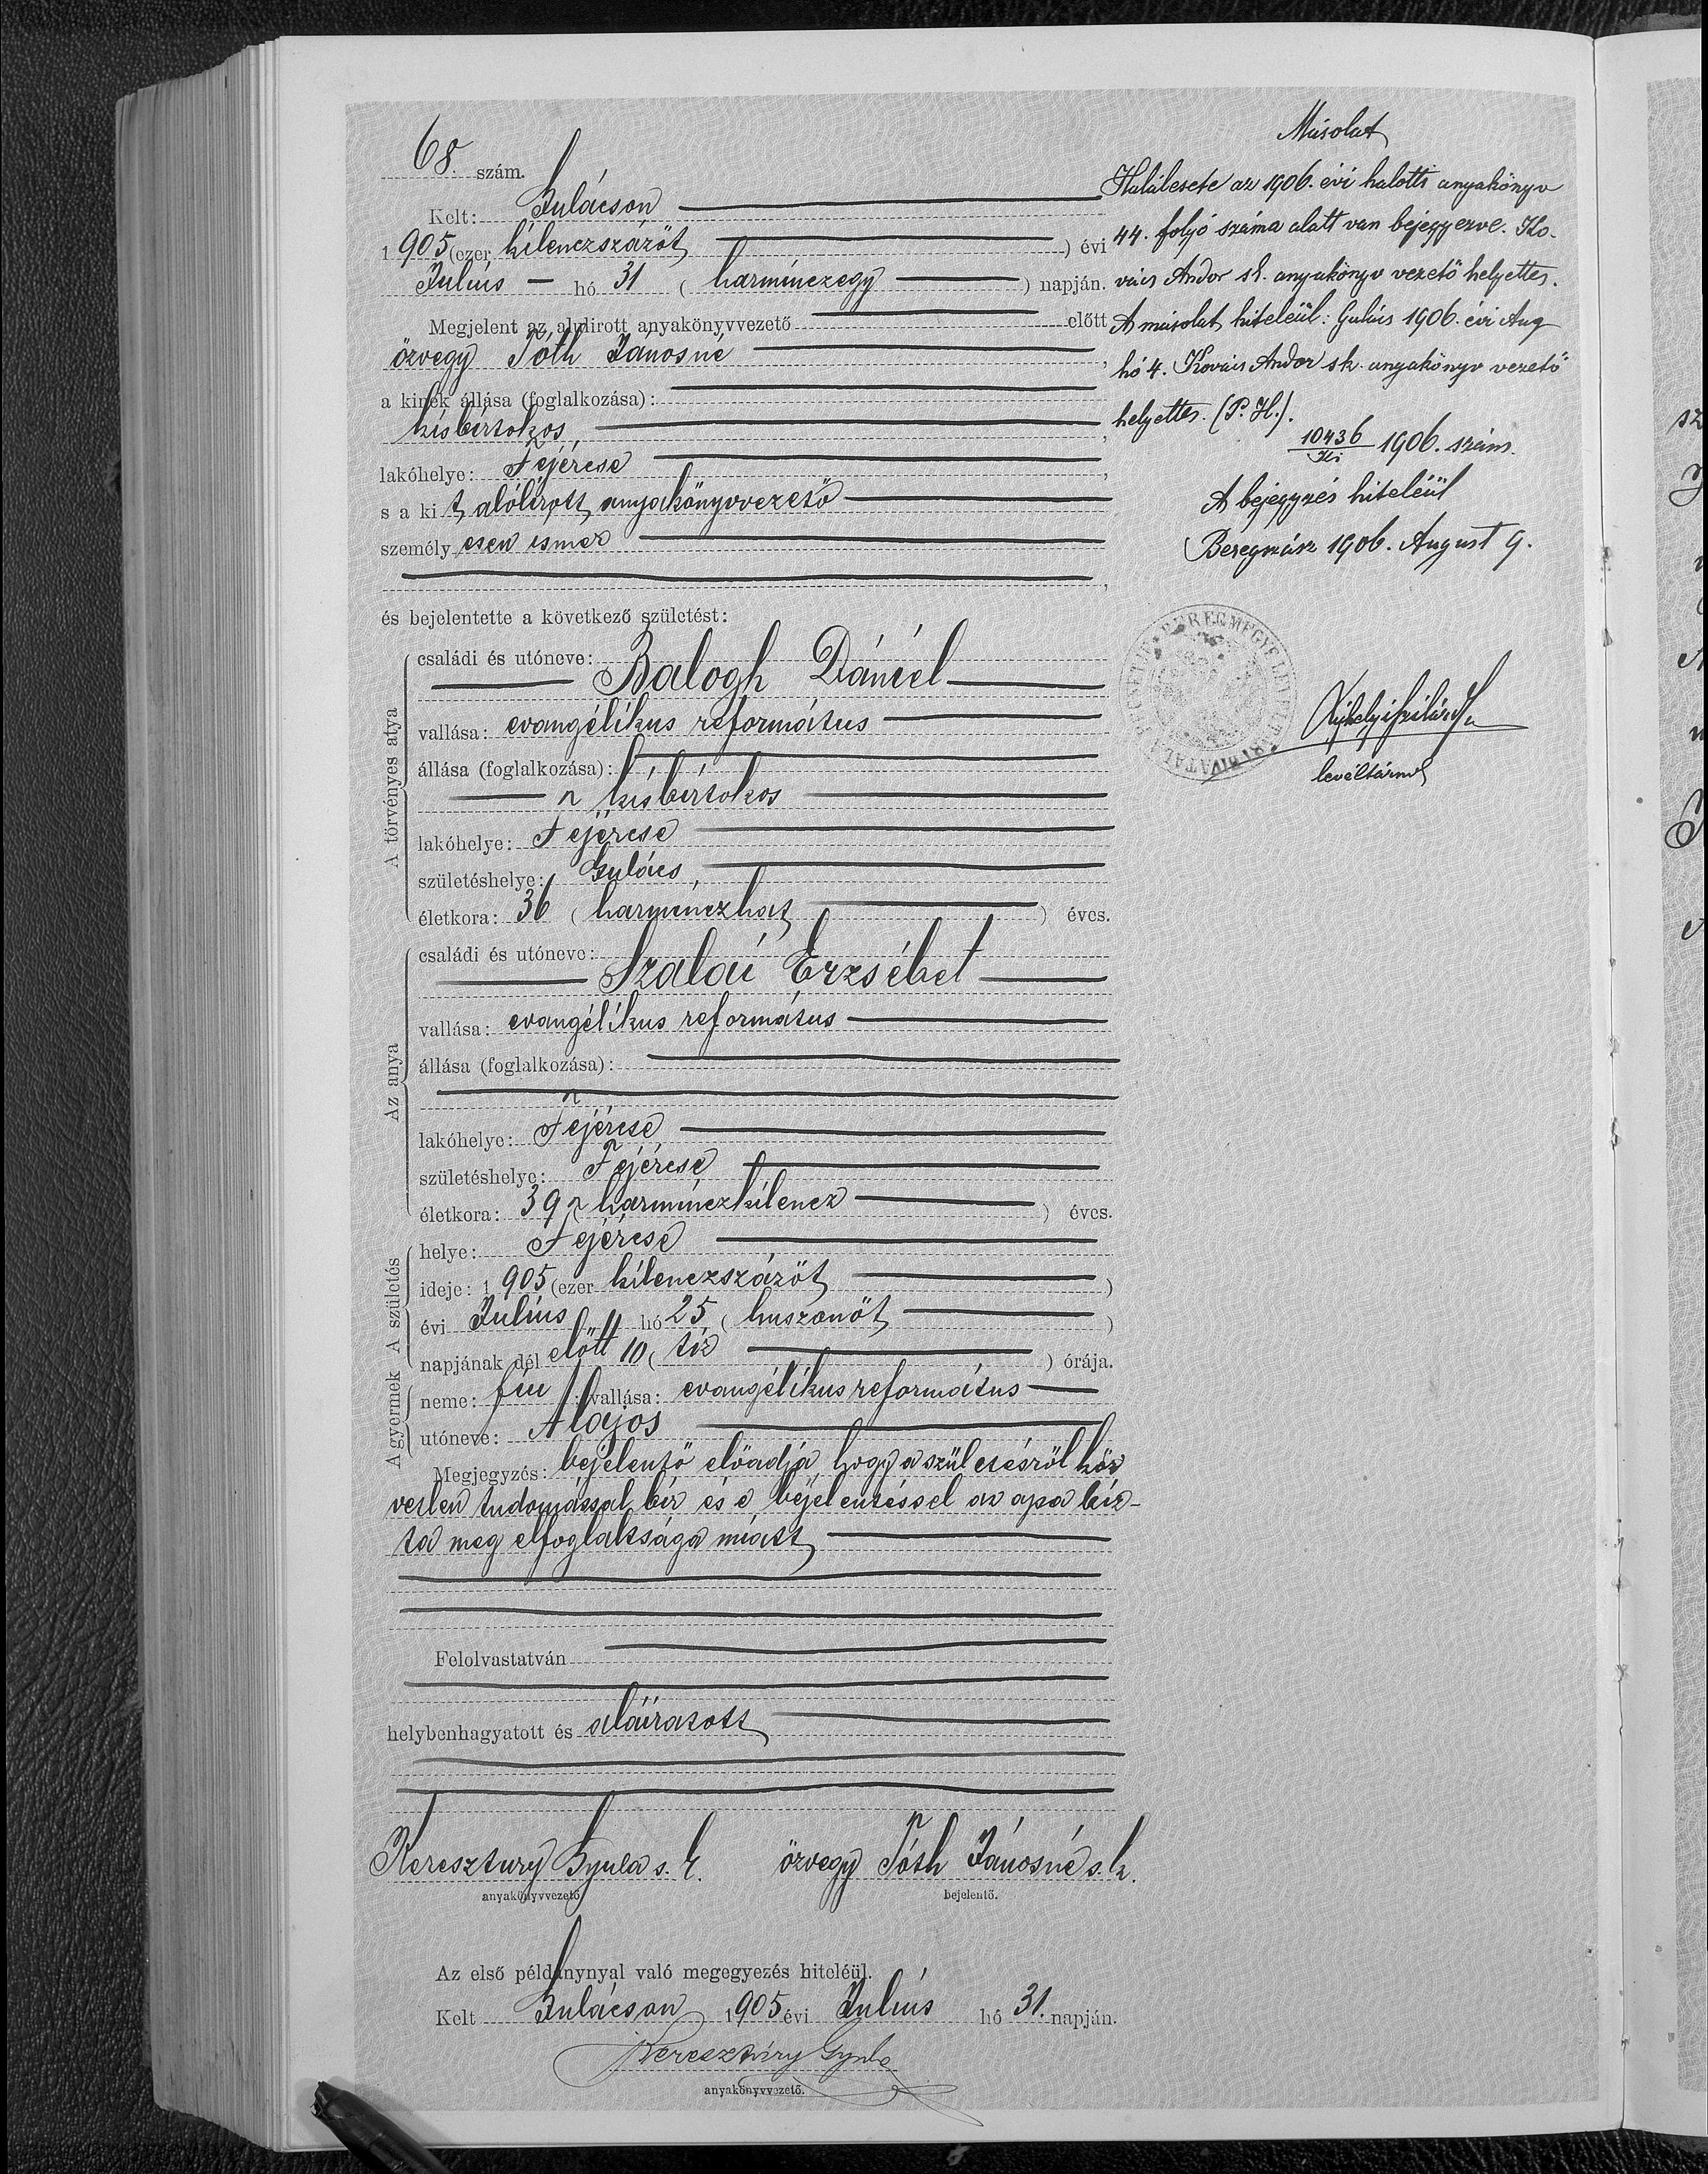 68. szám.
Kelt: Gulácson
1905 (ezer kilenczszázöt) évi
Julius hó 31 (harminczegy) napján.
Megjelent az alulirott anyakönyvvezető előtt
özvegy Tóth Jánosné,
a kinek állása (foglalkozása):
kisbirtokos,
lakóhelye: Fejércse,
s a kit, alólirott anyakönyvvezető
személyesen ismer
,
és bejelentette a következő születést:
A törvényes atya
családi és utóneve:
Balogh Dániel
vallása: evangélikus református
állása (foglalkozása):
kisbirtokos
lakóhelye: Fejércse
születéshelye: Gulács,
életkora: 36 (harminczhat) éves.
Az anya
családi és utóneve:
Szalai Erzsébet
vallása: evangélikus református
állása (foglalkozása):
lakóhelye: Fejércse
születéshelye: Fejércse
életkora: 39 (harminczkilencz) éves.
A születés
helye: Fejércse
ideje: 1905 (ezer kilenczszázöt)
évi Julius hó 25 (huszonöt)
napjának dél előtt 10 (tiz) órája.
A gyermek
neme: fiu; vallása: evangélikus református
utóneve: Alajos
Megjegyzés: bejelentő előadja, hogy a születésről köz
vetlen tudomással bir és e bejelentéssel az apa biz-
ta meg elfoglaltsága miatt
Felolvastatván
helybenhagyatott és aláiratott
Keresztury Gyula s. k. özvegy Tóth Jánosné s. k.
anyakönyvvezető bejelentő.
Az első példánynyal való megegyezés hiteléül.
Kelt Gulácson 1905 évi Julius hó 31. napján.
Keresztúry Gyula
anyakönyvvezető.
Másolat
Halálesete az 1906. évi halotti anyakönyv
44. folyó száma alatt van bejegyezve. Ko-
vács Andor sk. anyakönyv vezető helyettes.
A másolat hiteléül: Gulács 1906. évi Aug
hó 4. Kovács Andor sk. anyakönyv vezető
helyettes. (P. H.).
10436
Ki 1906. szám.
A bejegyzés hiteléül
Beregszász 1906. August 9.
levéltárnok